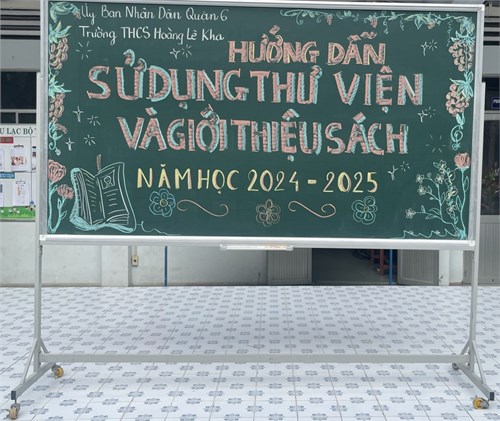 Ủy Ban Nhân Dân Quận 6
Trường THCS Hoàng Lê Kha
HƯỚNG DẪN
SỬ DỤNG THƯ VIỆN
VÀ GIỚI THIỆU SÁCH
NĂM HỌC 2024 - 2025
U LẠC BỘ